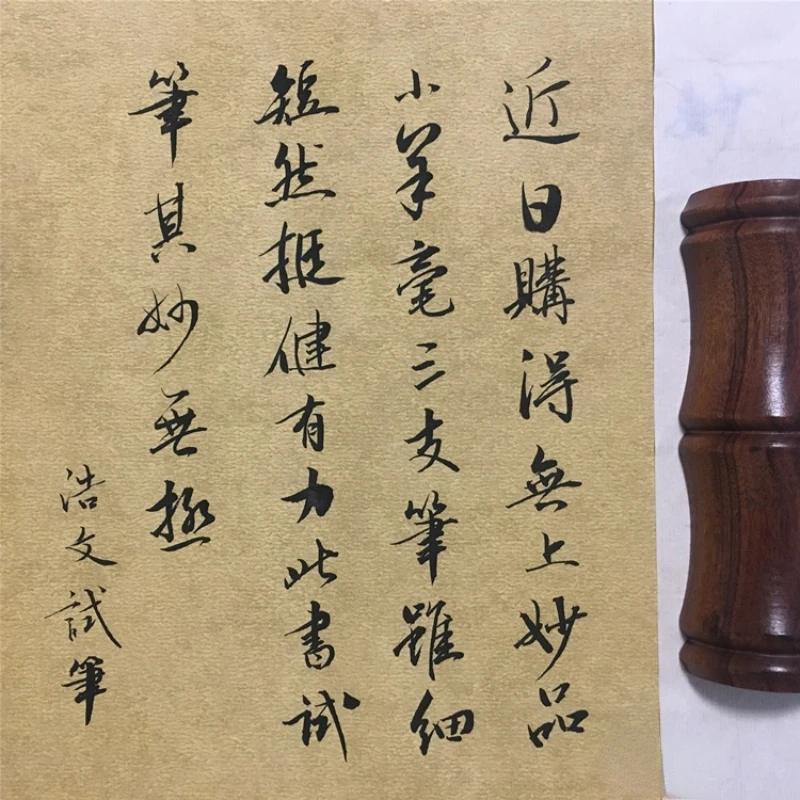 近日購得無上妙品
小羊毫三支筆雖細
短然挺健有力此書試
筆其妙無極
浩文試筆